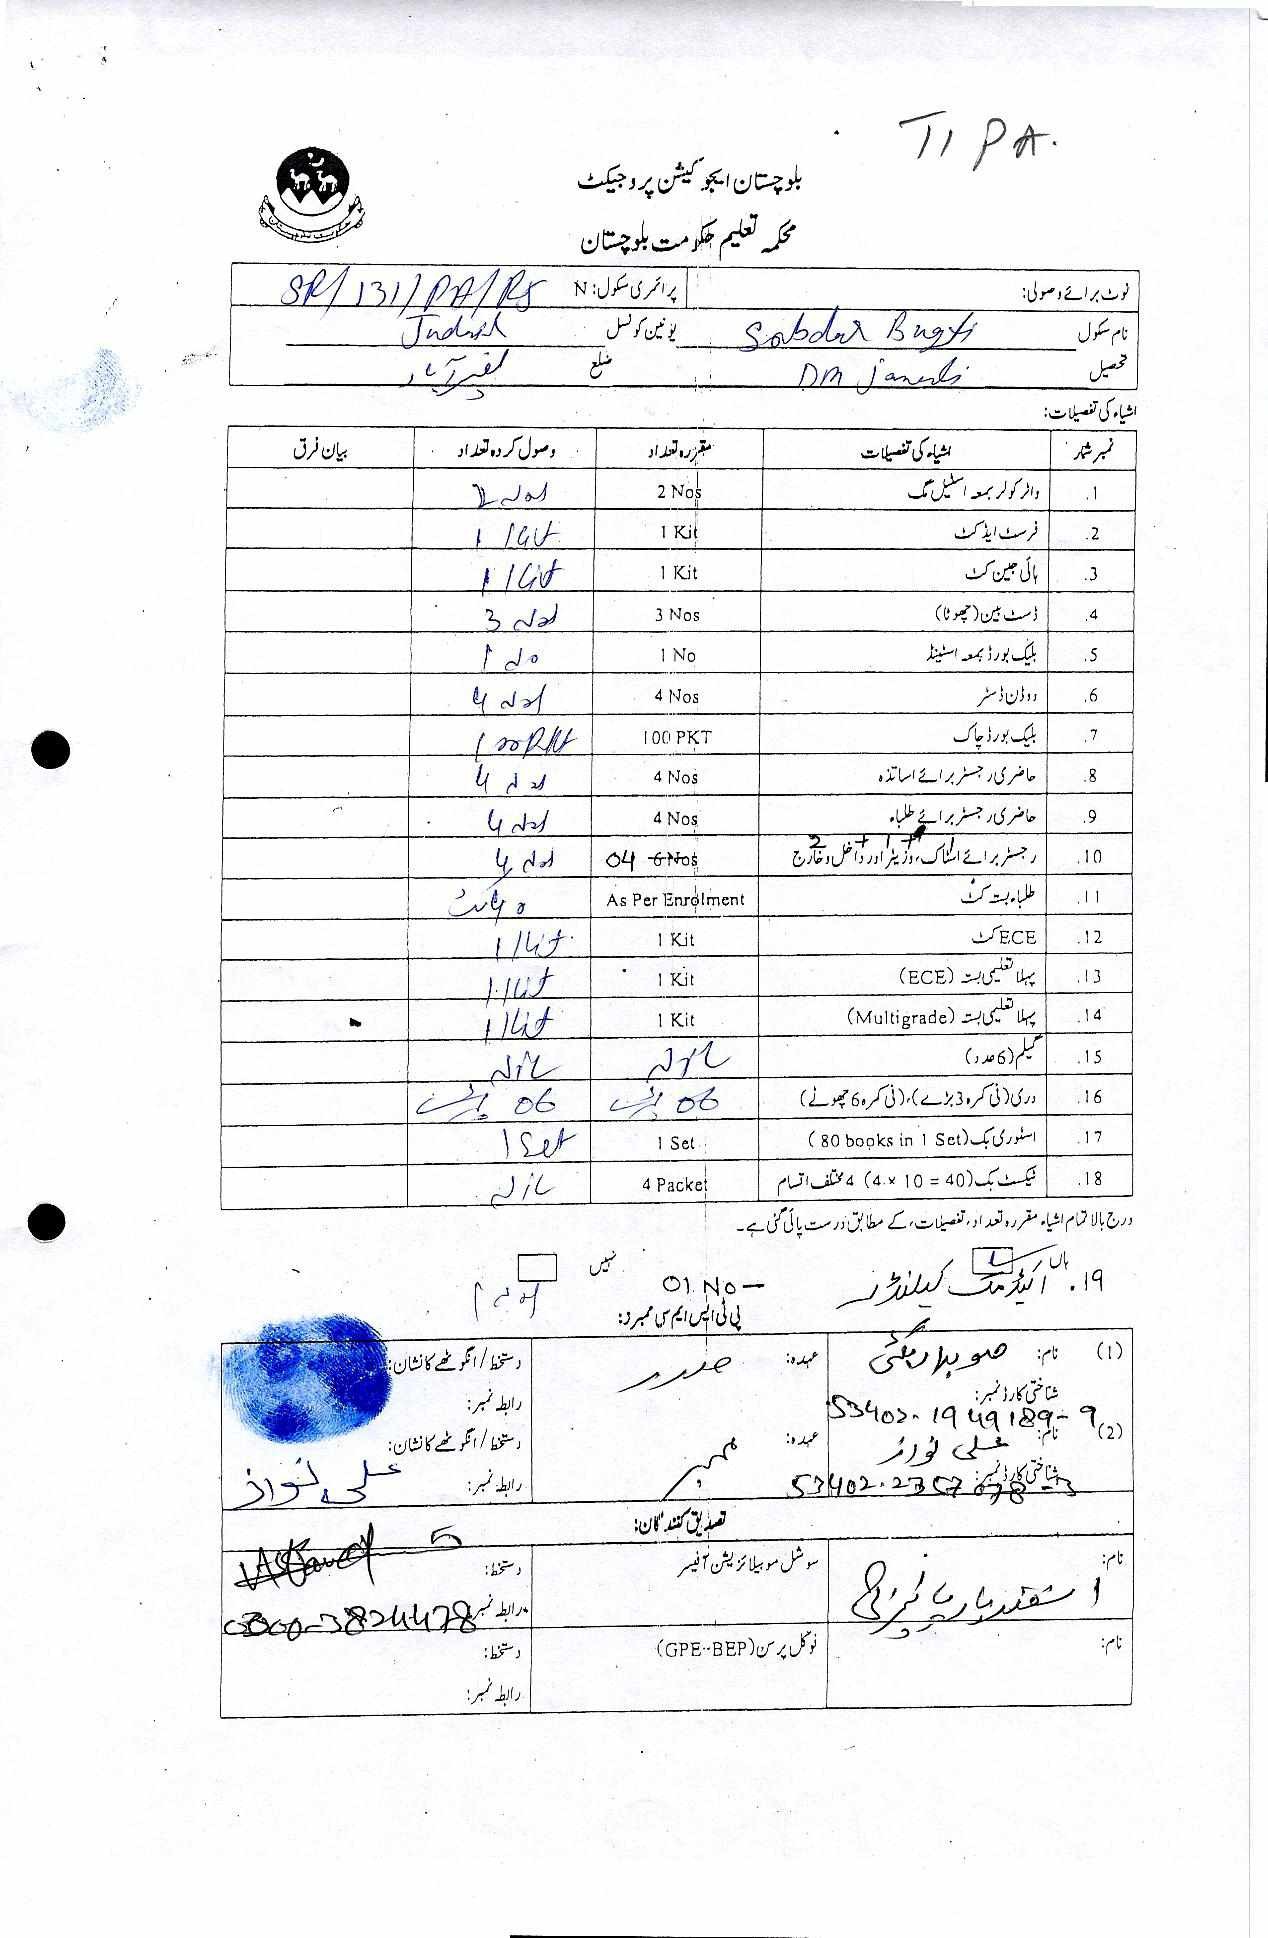 T1 PA.
بلوچستان ایجوکیشن پروجیکٹ
محکمہ تعلیم حکومت بلوچستان
نوٹ برائے وصولی: پرائمری سکول: N SR/131/PA/RS
نام سکول Sabdar Bugti یونین کونسل
تحصیل DM Jamali ضلع نصیرآباد
اشیاء کی تفصیلات:
نمبر شمار اشیاء کی تفصیلات مقررہ تعداد وصول کردہ تعداد بیان فرق
1. واٹر کولر بمعہ اسٹیل مگ 2 Nos 2 Nos
2. فرسٹ ایڈ کٹ 1 Kit 1 Kit
3. ہائی جین کٹ 1 Kit 1 Kit
4. ڈسٹ بین (چھوٹا) 3 Nos 3 Nos
5. بلیک بورڈ بمعہ اسٹینڈ 1 No 1 No
6. ووڈن ڈسٹر 4 Nos 4 Nos
7. بلیک بورڈ چاک 100 PKT 100 PKT
8. حاضری رجسٹر برائے اساتذہ 4 Nos 4 Nos
9. حاضری رجسٹر برائے طلباء 4 Nos 4 Nos
2 + 1 + 1
10. رجسٹر برائے اسٹاک، وزیٹر اور داخل و خارج 04 6 Nos 4 Nos
11. طلباء بستہ کٹ As Per Enrolment 40 کٹ
12. ECE کٹ 1 Kit 1 Kit
13. پہلا تعلیمی بستہ (ECE) 1 Kit 1 Kit
14. پہلا تعلیمی بستہ (Multigrade) 1 Kit 1 Kit
15. گیلم (6 عدد) Nil Nil
16. دری (فی کمرہ 3 بڑے)، (فی کمرہ 6 چھوٹے) 06 06
17. اسٹوری بک (80 books in 1 Set) 1 Set 1 Set
18. ٹیکسٹ بک (4 x 10 = 40) 4 مختلف اقسام 4 Packet Nil
درج بالا تمام اشیاء مقررہ تعداد، تفصیلات، کے مطابق درست پائی گئی ہے۔
ہاں نہیں
۱۹. اکیڈمک کیلنڈر 01 No - 1 No
پی ٹی ایس ایم سی ممبرز:
(1) نام: عہدہ: صدر دستخط / انگوٹھے کا نشان:
شناختی کارڈ نمبر: 53402-1949189-9 رابطہ نمبر:
(2) نام: علی نواز عہدہ: ممبر دستخط / انگوٹھے کا نشان:
شناختی کارڈ نمبر: رابطہ نمبر: علی نواز
تصدیق کنندگان:
نام: سوشل موبیلائزیشن آفیسر دستخط:
رابطہ نمبر: 0300-3824478
نام: فوکل پرسن (GPE-BEP) دستخط:
رابطہ نمبر: